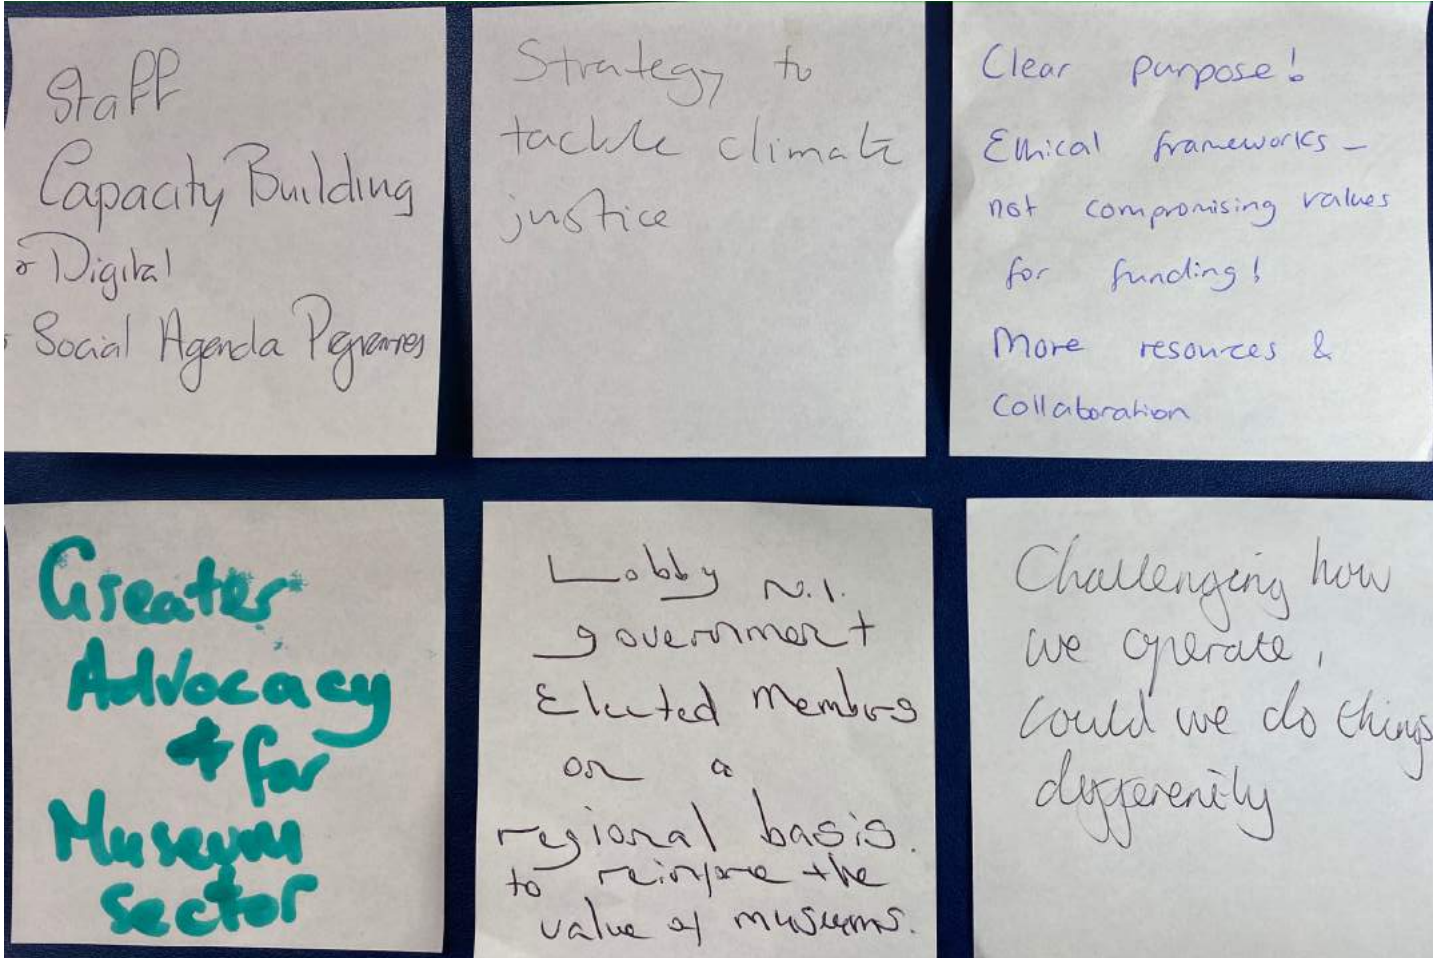 Staff
Capacity Building
Digital
Social Agenda Programmes
Strategy to
tackle climate
justice
Clear purpose!
Ethical frameworks –
not compromising values
for funding!
More resources &
Collaboration
Greater
Advocacy
for
Museum
Sector
Lobby N.I.
government
Elected Members
on a
regional basis.
to reinforce the
value of museums.
Challenging how
we operate,
could we do things
differently